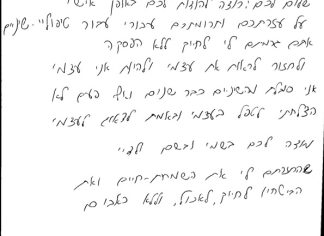 שלום לכם! רוצה להודות לכם באופן אישי
על עזרתכם ותרומתכם עבורי עבור טיפולי שיניים
אתם גרמתם לי לחייך ללא הפסקה
ולחזור לראות את עצמי ולהיות אני עצמי
אני סובלת מהשניים כבר שנים ואף פעם לא
הצלחתי לטפל בעצמי ובאמת לדאוג לעצמי
מודה לכם בשמי ובשם
שהחזרתם לי את השמחת-חיים ואת
הביטחון לחייך, לאכול, וללא כאבים